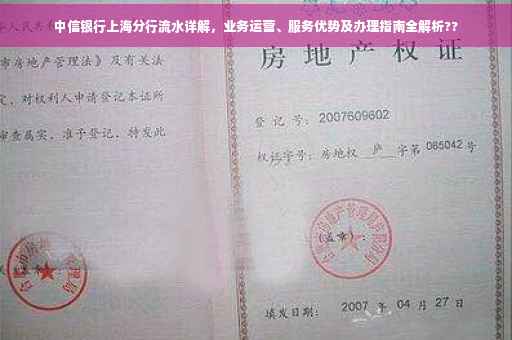 中信银行上海分行流水详解，业务运营、服务优势及办理指南全解析??
市房地产管理法》及有关法
定，对权利人申请登记本证所
审查属实，准予登记，特发此
房地产权证
登记号：2007609602
权证字号：房地权 庐 字第 085042 号
(盖章)：
填发日期： 2007 年 04 月 27 日